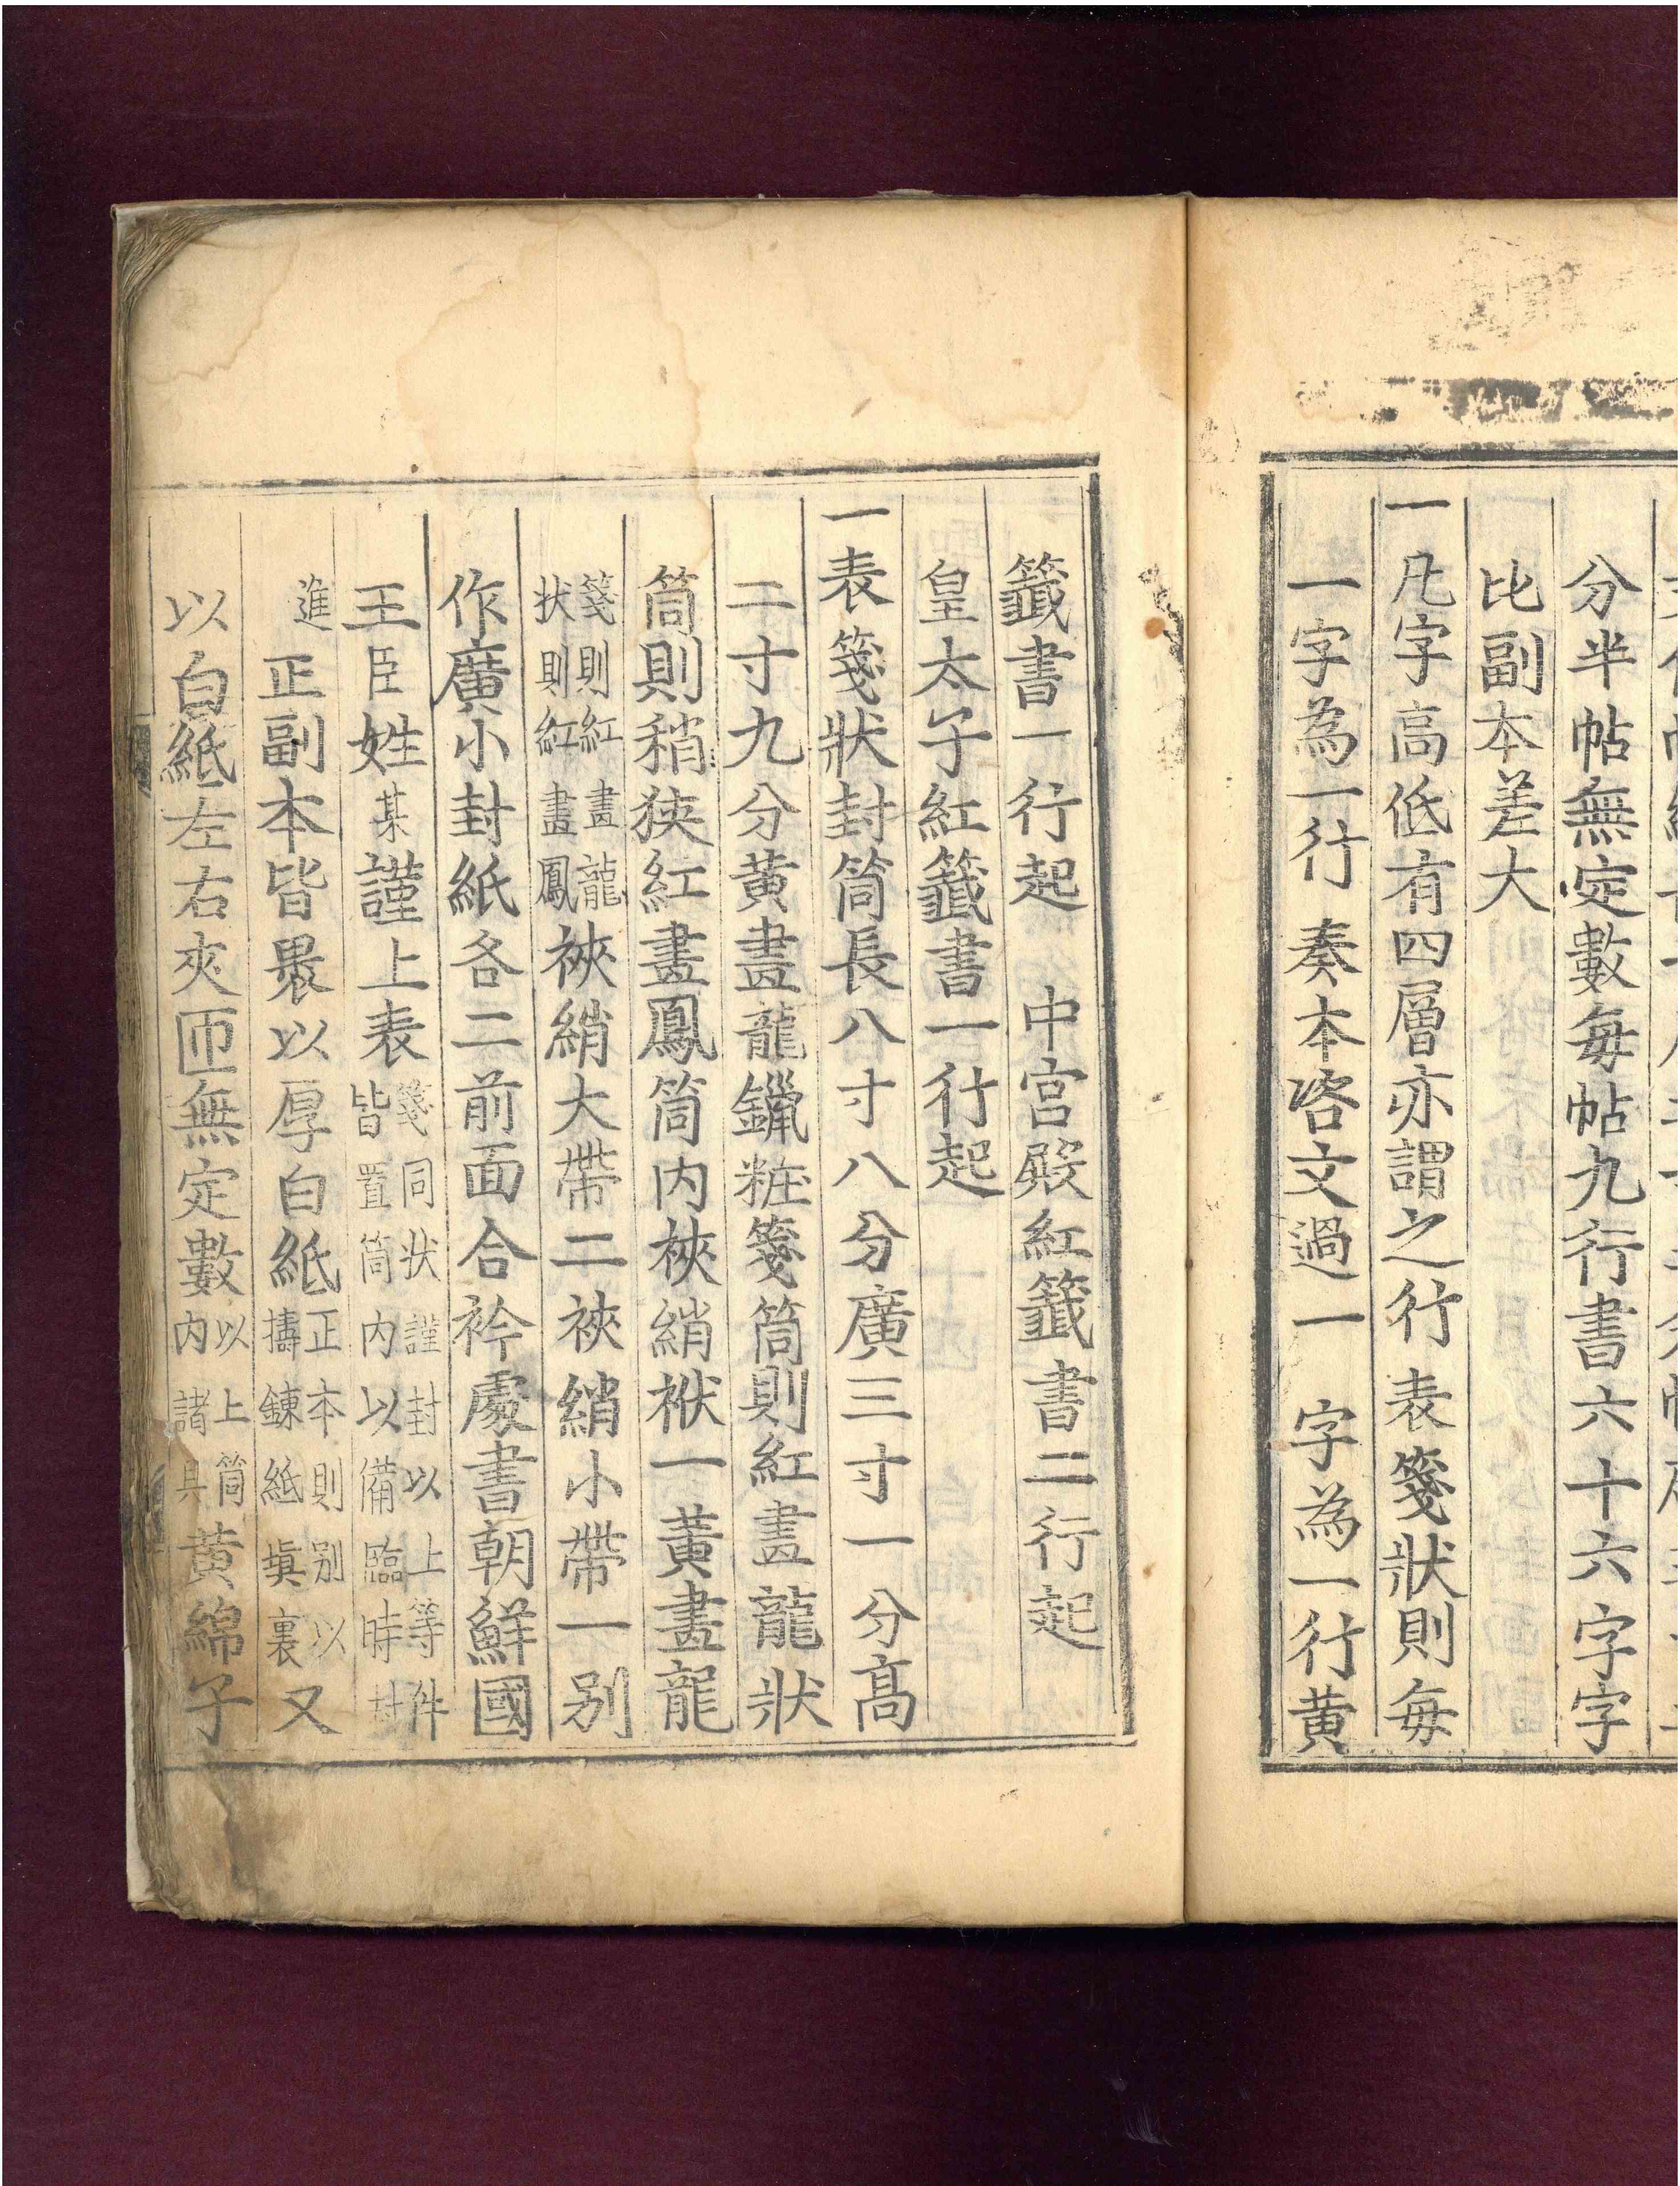 分半帖無定數每帖九行書六十六字字
比副本差大
一凡字高低有四層亦謂之行表箋狀則每
一字為一行奏本咨文過一字為一行黄
籤書一行起 中宮殿紅籤書二行起
皇太子紅籤書一行起
一表箋狀封筒長八寸八分廣三寸一分高
二寸九分黄畫龍鑞粧箋筒則紅畫龍狀
筒則稍狹紅畫鳳筒内裌綃袱一黄畫龍
箋則紅畫龍
状則紅畫鳳
裌綃大帶二裌綃小帶一别
作廣小封紙各二前面合衿處書朝鮮國
王臣姓某謹上表
箋同状謹封以上等件
皆置筒内以備臨時封
進
正副本皆褁以厚白紙
正本則别以
擣鍊紙塡裏
又
以白紙左右夾匝無定數
以上筒
内諸具
黄綿子